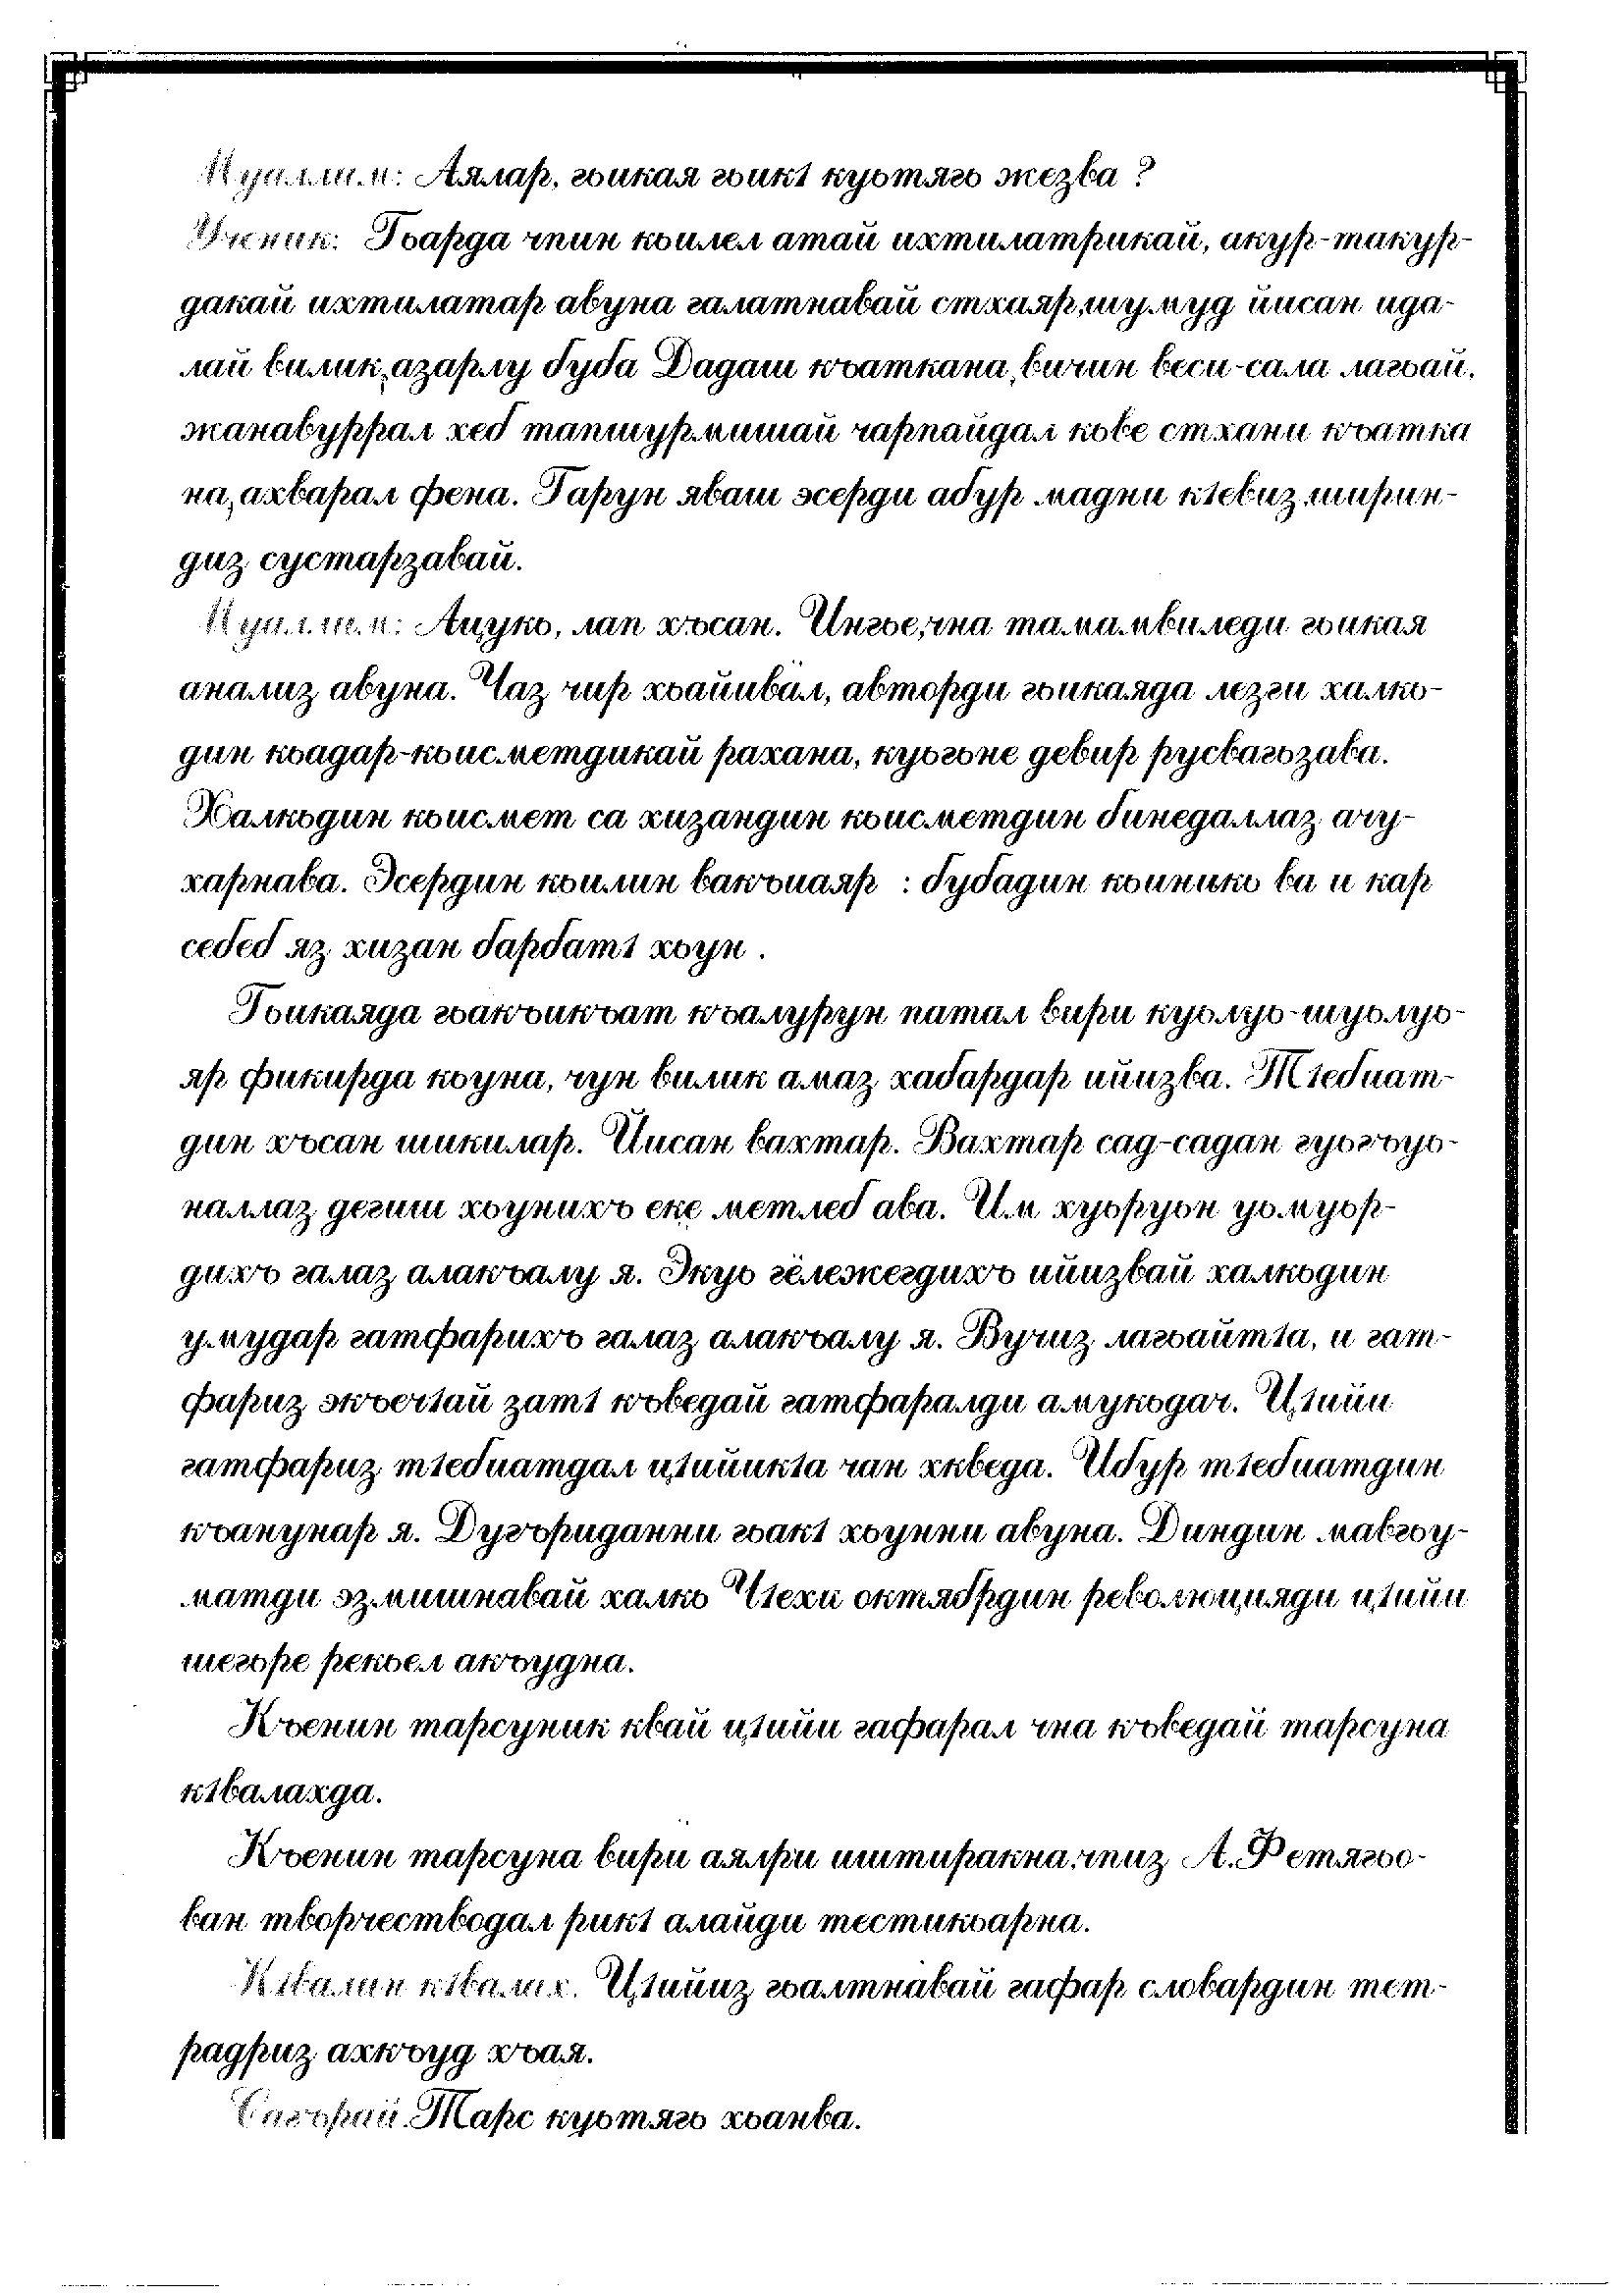 Муаллим: Аялар, гьикая гьикӀ куьтягь жезва ?
Ученик: Гьарда чпин кьилел атай ихтилатрикай, акур-такур-
дакай ихтилатар авуна галатнавай стхаяр,шумуд йисан ида-
лай вилик,азарлу буба Дадаш къаткана,вичин веси-сала лагьай,
жанавуррал хеб тапшурмишай чарпайдал кьве стхани къатка
на,ахварал фена. Гарун яваш эсерди абур мадни кӀевиз,ширин-
диз сустарзавай.
Муаллим: Ацукь, лап хъсан. Ингье,чна тамамвиледи гьикая
анализ авуна. Чаз чир хьайивал, авторди гьикаяда лезги халкь-
дин кьадар-кьисметдикай рахана, куьгьне девир русвагьзава.
Халкьдин кьисмет са хизандин кьисметдин бинедаллаз ачу-
харнава. Эсердин кьилин вакъиаяр : бубадин кьиникь ва и кар
себеб яз хизан барбатӀ хьун .
Гьикаяда гьакъикъат къалурун патал вири куьлуь-шуьлуь-
яр фикирда кьуна, чун вилик амаз хабардар ийизва. ТӀебиат-
дин хъсан шикилар. Йисан вахтар. Вахтар сад-садан гуьгъуь-
наллаз дегиш хьунихъ еке метлеб ава. Им хуьруьн уьмуьр-
дихъ галаз алакъалу я. Экуь гёлежегдихъ ийизвай халкьдин
умудар гатфарихъ галаз алакъалу я. Вучиз лагьайтӀа, и гат-
фариз экъечӀай затӀ къведай гатфаралди амукьдач. ЦӀийи
гатфариз тӀебиатдал цӀийикӀа чан хкведа. Ибур тӀебиатдин
къанунар я. Дугъриданни гьакӀ хьунни авуна. Диндин мавгьу-
матди эзмишнавай халкь ЧӀехи октябрдин революцияди цӀийи
шегьре рекьел акъудна.
Къенин тарсуник квай цӀийи гафарал чна къведай тарсуна
кӀвалахда.
Къенин тарсуна вири аялри иштиракна,чпиз А.Фетягьо-
ван творчестводал рикӀ алайди тестикьарна.
КӀвалин кӀвалах. ЦӀийиз гьалтнавай гафар словардин тет-
радриз ахкъуд хъая.
Сагърай.Тарс куьтягь хьанва.